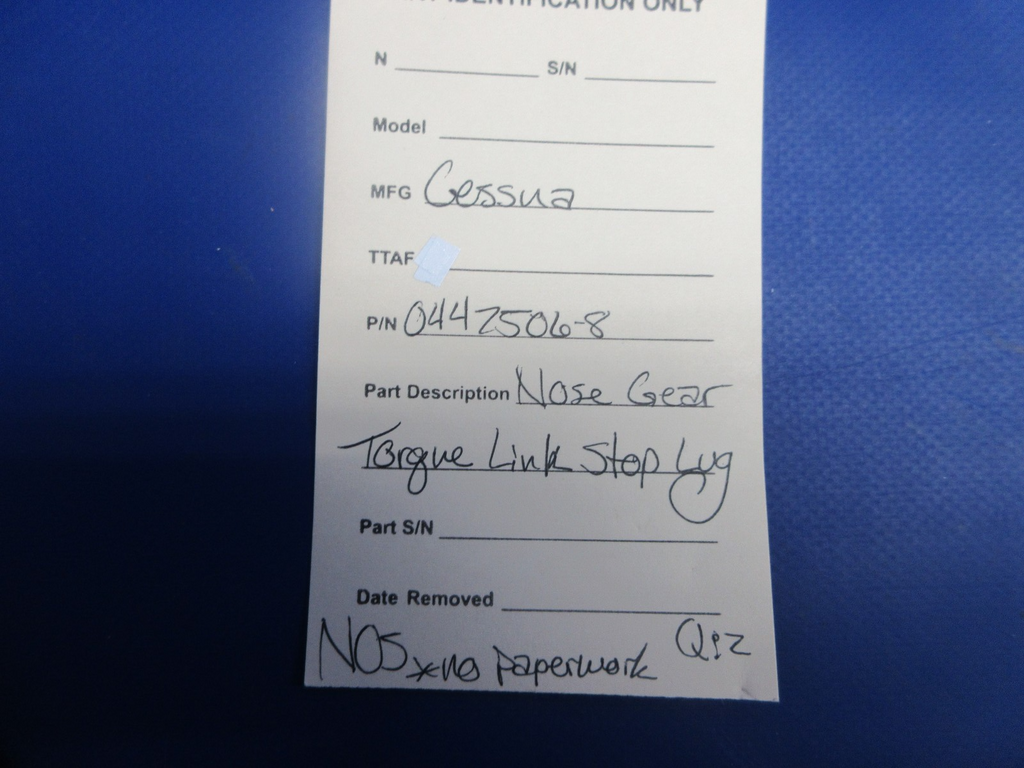 IDENTIFICATION ONLY
N S/N
Model
MFG Cessna
TTAF
P/N 0442506-8
Part Description Nose Gear
Torque Link Stop Lug
Part S/N
Date Removed
NOS *no paperwork Q:2